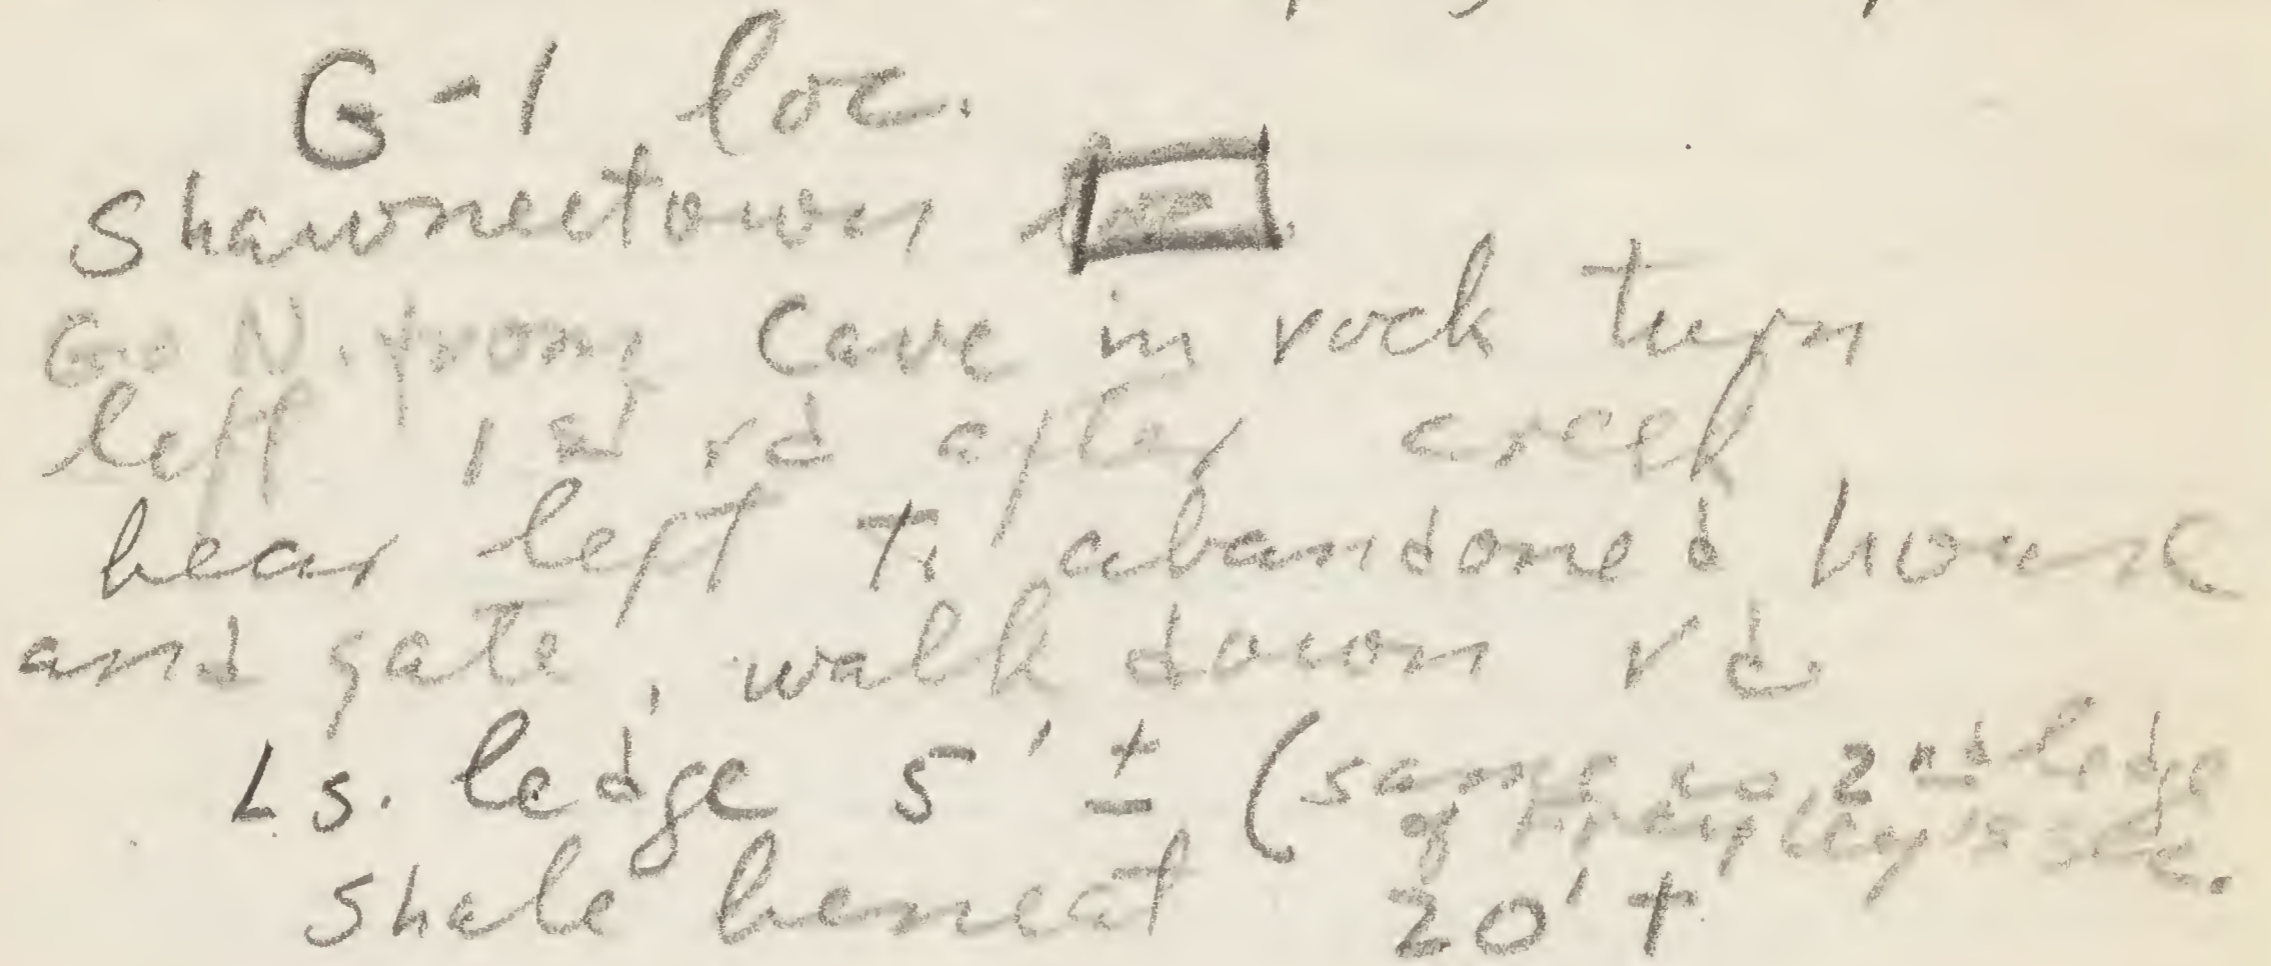 G-1 loc.
Shawneetown
Go N. from Cave in rock turn
left 1st rd after creek
bear left to abandoned house
and gate, walk down rd
Ls. ledge 5' ± (same as 2nd ledge
of
Shale beneat 20'+